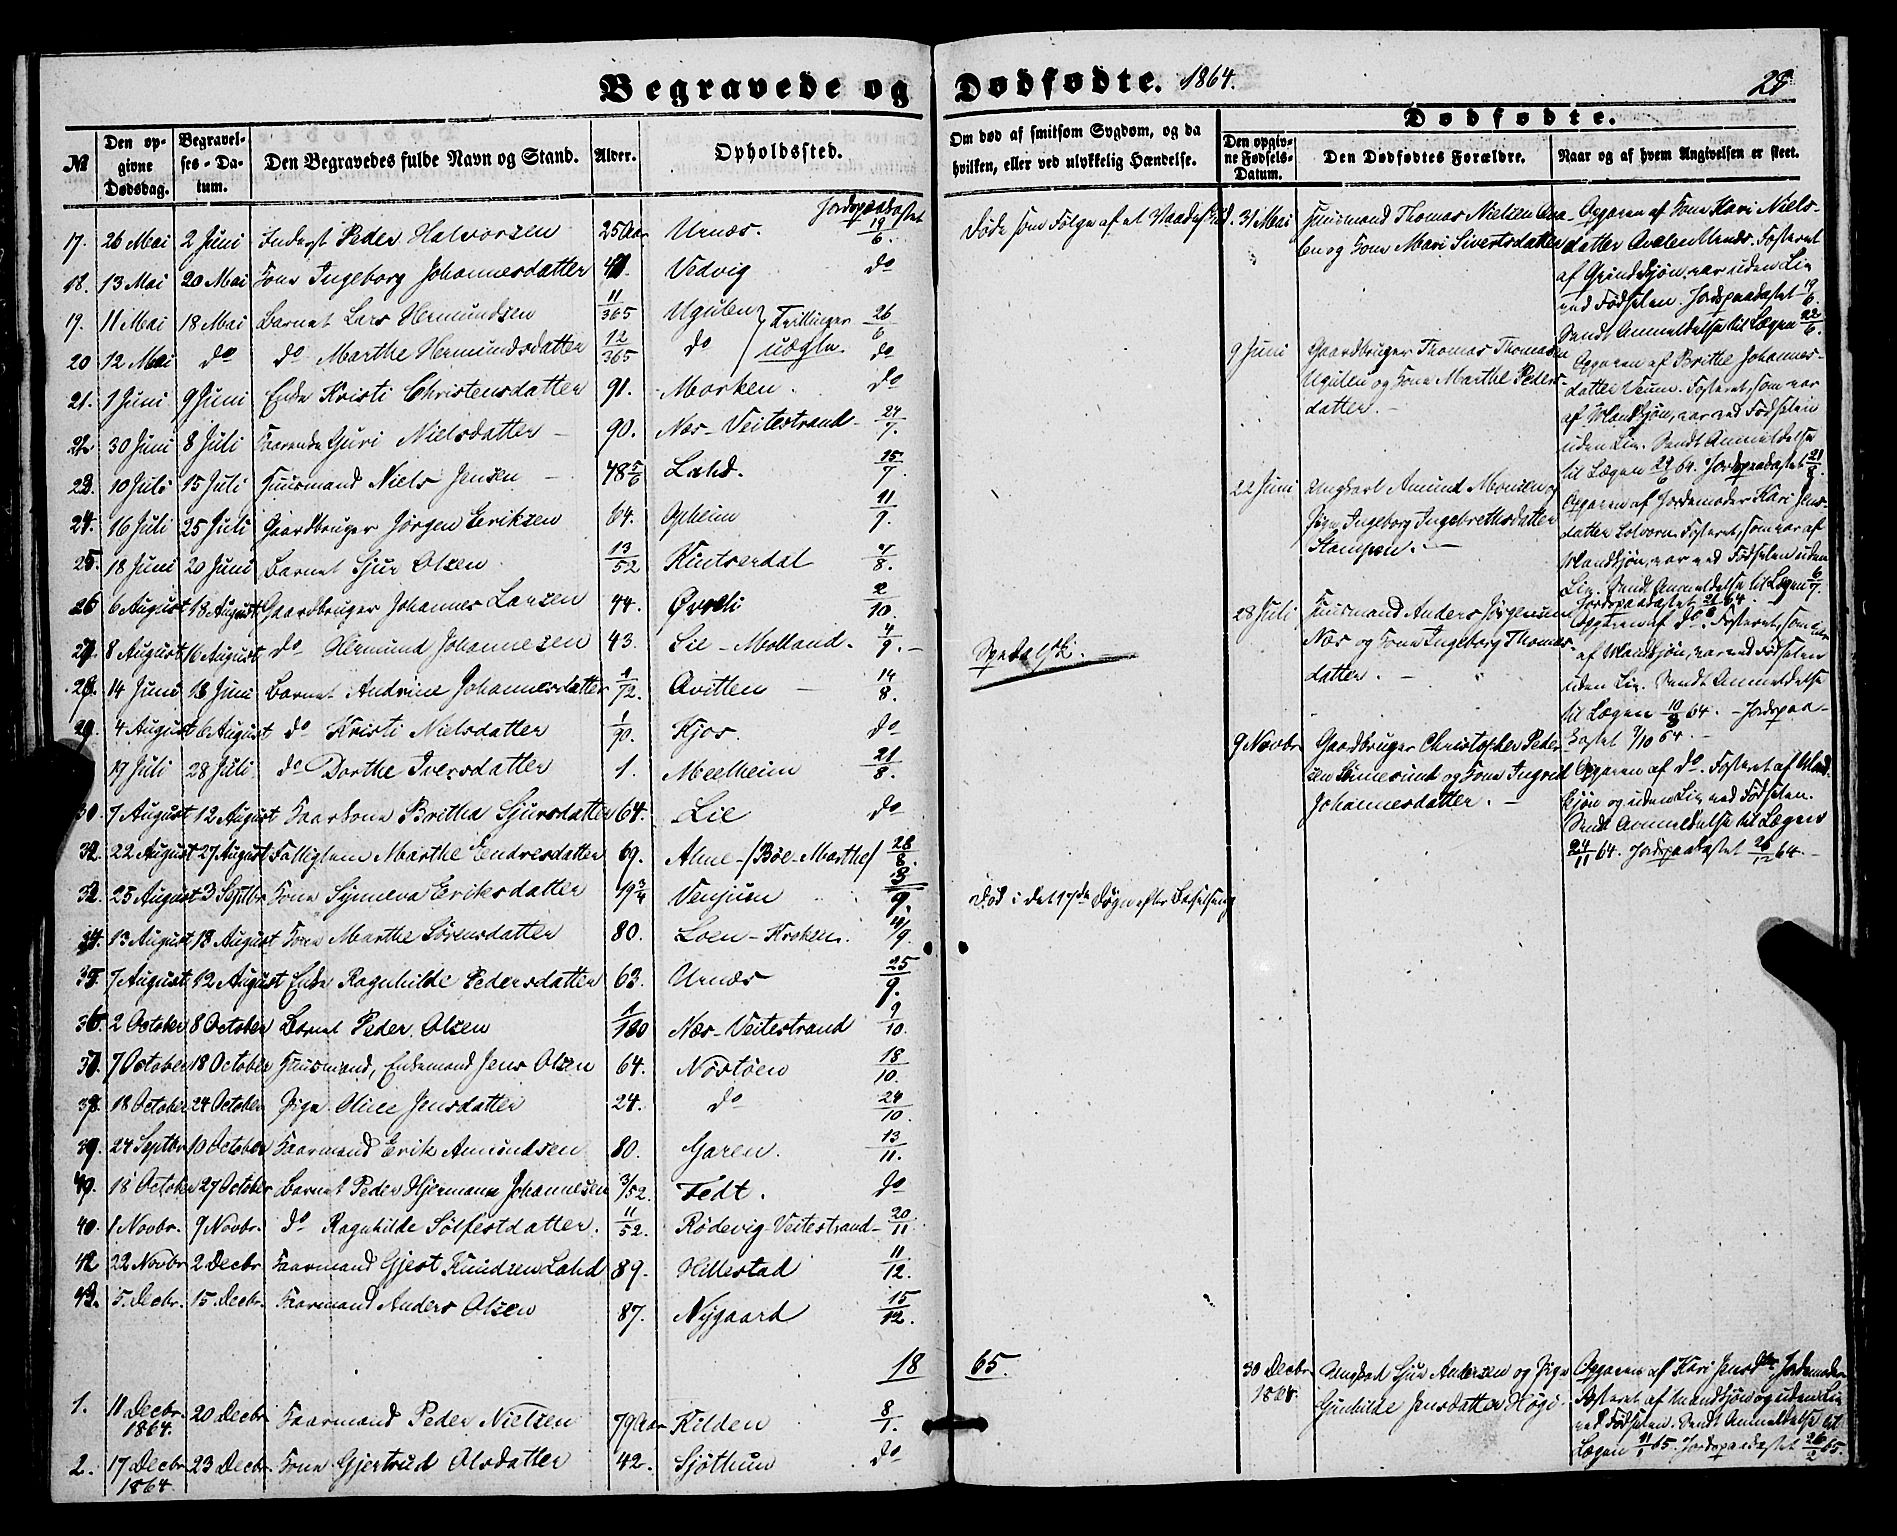 Begravede og Dødfødte. 1864.
28
№
Den opgivne Dødsdag.
Begravelses-Datum.
Den Begravedes fulde Navn og Stand.
Alder.
Opholdssted.
Om død af smitsom Sygdom, og da hvilken, eller ved ulykkelig Hændelse.
Dødfødte.
Den opgivne Fødsels-Datum.
Den Dødfødtes Forældre.
Naar og af hvem Angivelsen er skeet.
Jordspaakastet
17. 26 Mai 2 Juni Inderst Peder Halvorsen 25 Aar Urnæs. 19/6.
18. 13 Mai 20 Mai Kone Ingeborg Johannesdatter Vedvig do
19. 11 Mai 18 Mai Barnet Lars Hermundsen 11/365 Ugulen Tvillinger 26/6
20 12 Mai do do Marthe Hermundsdatter 12/365 do uægte. do
21. 1 Juni 9 Juni Enke Kristi Christensdatter 91. Morken. do
22 30 Juni 8 Juli Kaarenke Guri Nielsdatter 90. Næs-Veitestrand 24/7.
23. 10 Juli 15 Juli Huusmand Niels Jensen 48 5/6 Lahd. 15/7.
24. 16 Juli 25 Juli Gaardbruger Jørgen Eriksen 64. Opheim 11/7.
25. 18 Juni 20 Juni Barnet Sjur Olsen 13/52 Kinserdal 7/8.
26 6 August 18 August Gaardbruger Johannes Larsen 44. Øvreli 2/10.
27. 8 August 16 August do Hermund Johannesen 43. Lie-Molland. 4/9.
28. 14 Juni 18 Juni Barnet Andrine Johannesdatter 1/72. Qvitten 14/8.
29. 4 August 6 August do Kristi Nielsdatter 1/90. Kjos do
19 Juli 28 Juli. do Dorthe Iversdatter 1. Meelheim 21/8.
30. 7 August 12 August Kaarkone Britha Sjursdatter 64. Lie do
32. 22 August 27 August Fattiglem Marthe Endresdatter 69. Ahne-/Bøe-Marthe/ 28/8.
25 August 3 Septbr. Kone Synneva Eriksdatter 19 3/4 Venjum 8/9.
34. 13 August 18 August Kone Marthe Sørensdatter 80. Loen-Kroken. 4/9.
35. 7 August 12 August Enke Ragnhilde Pedersdatter 63. Urnæs 25/9.
36. 2 October 8 October Barnet Peder Olsen Næs-Veitestrand 9/10.
7 October 18 October Huusmand, Enkemand Jens Olsen 64. Nøstøen 18/10.
38. 18 October 24 October Pige Oline Jensdatter 24. do 24/10
39. 24 Septbr. 10 October Kaarmand Erik Amundsen 80. Garen. 13/11.
40. 18 October 27 October Barnet Peder Hjermann Johannesen 3/52. Fedt. do
40. 1 Novbr. 9 Novbr. do Ragnhilde Solfestdatter. 11/52. Rødevig-Veitestrand 20/11
42 22 Novbr 2 Decbr. Kaarmand Gjest Knudsen Lahd 89. Hillestad 11/12.
43. 5. Decbr. 15 Decbr. Kaarmand Anders Olsen 87. Nygaard 15/12.
18 65.
1. 11 Decbr. 1864. 20 Decbr. Kaarmand Peder Nielsen 79 Aar Kilden 8/1.
2. 17 Decbr 1864 23 Decbr. Kone Gjertrud Olsdatter 42. Sjøthun do
Døde som Følge af et Vaadeskud.
Spedalsk.
Død i det 17de Døgn efter Barselseng
31 Mai Huusmand Thomas Nielsen Qva-
len og Kone Mari Sivertsdatter
Opgaven af Kone Kari Niels-
datter Qvalen Unds. Fosteret
af Qvindkjøn, var uden Liv
ved Fødselen. Jordspaakastet 19/6.
Sendt Anmeldelse til Lægen 22/6.
9 Juni Gaardbruger Thomas Thomasen
Ugulen og Kone Marthe Peders-
datter.
Opgaven af Brithe Johannes-
datter Veum. Fosteret, som var
af Mandkjøn, var ved Fødselen
uden Liv. Sendt Anmeldelse
til Lægen 29/6 64. Jordspaakastet 21/8.
22 Juni Ungkarl Amund Monsen og
Pige Ingeborg Ingebrethsdatter
Stampen.
Opgaven af Jordemoder Kari Jens-
datter Solvorn. Fosteret, som var af
Mandkjøn, var ved Fødselen uden
Liv. Sendt Anmeldelse til Lægen 6/7.
Jordspaakastet 21/8 64.
28 Juli Huusmand Anders Jørgensen
Næs og Kone Ingeborg Thomas-
datter.
Opgaven af do. Fosteret, som var
af Mandkjøn, var ved Fødselen
uden Liv. Sendt Anmeldelse
til Lægen 10/8 64. Jordspaa-
kastet 9/10 64.
9 Novbr Gaardbruger Christopher Peder-
sen Sønnesund og Kone Ingrid
Johannesdatter.
Opgaven af do. Fosteret af Mand-
kjøn og uden Liv ved Fødselen.
Sendt Anmeldelse til Lægen
24/11 64. Jordspaakastet 26/12 64.
30 Decbr 1864. Ungkarl Sjur Andersen og Pige
Gunhilde Jensdatter Høgi
Opgaven af Kari Jensdtr Jordemoder
Fosteret af Mandkjøn og uden Liv
ved Fødselen. Sendt Anmeldelse til
Lægen 11/1 65. Jordspaakastet 26/2 65.